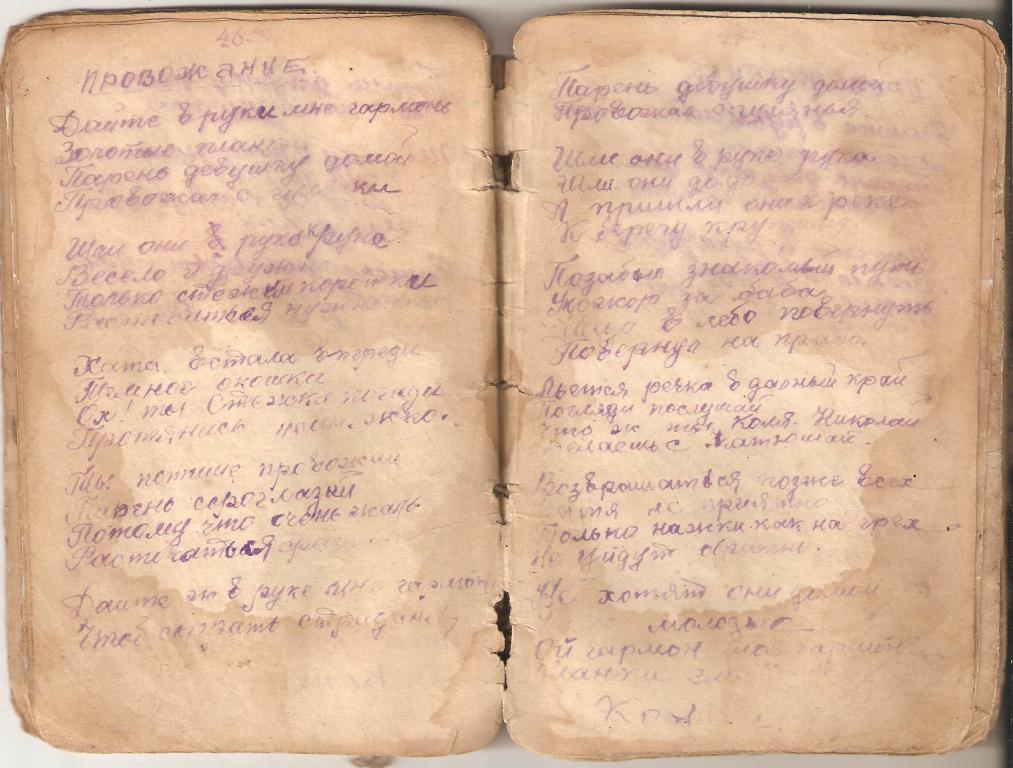 46
ПРОВОЖАНИЕ
Дайте в руки мне гармонь
Золотые планки
Парень девушку домой
Провожал с гулянки
Шли они в рука к руке
Весело и дружно
Только стежки
Растоваться нужно
Хата встала впереди
Темное окошко
Ох! ты Стежка погоди
Протянись немножко.
Ты потише провожай
Парень сероглазый
Потому что очень жаль
Растоваться сразу
Дайте ж в руке мне гармонь
Чтоб сыграть страданье
47
Парень девушку домой
Провожал с гулянья
Шли они в руке рука
Шли они до
А пришли они к реке
К берегу
Позабыл знакомый путь
Ухожор за бава
Надо в лево повернуть
Повернул на право.
Льется речка в дальный край
Погляди послушай
Что ж ты Коля Николай
Делаешь с Катюшай.
Возврашаться позже всех
не приятно
Только нажки как на грех
Не уйдут обратно.
Не хотят они домой
Ой гармон моя гармонь
Планки
Кон